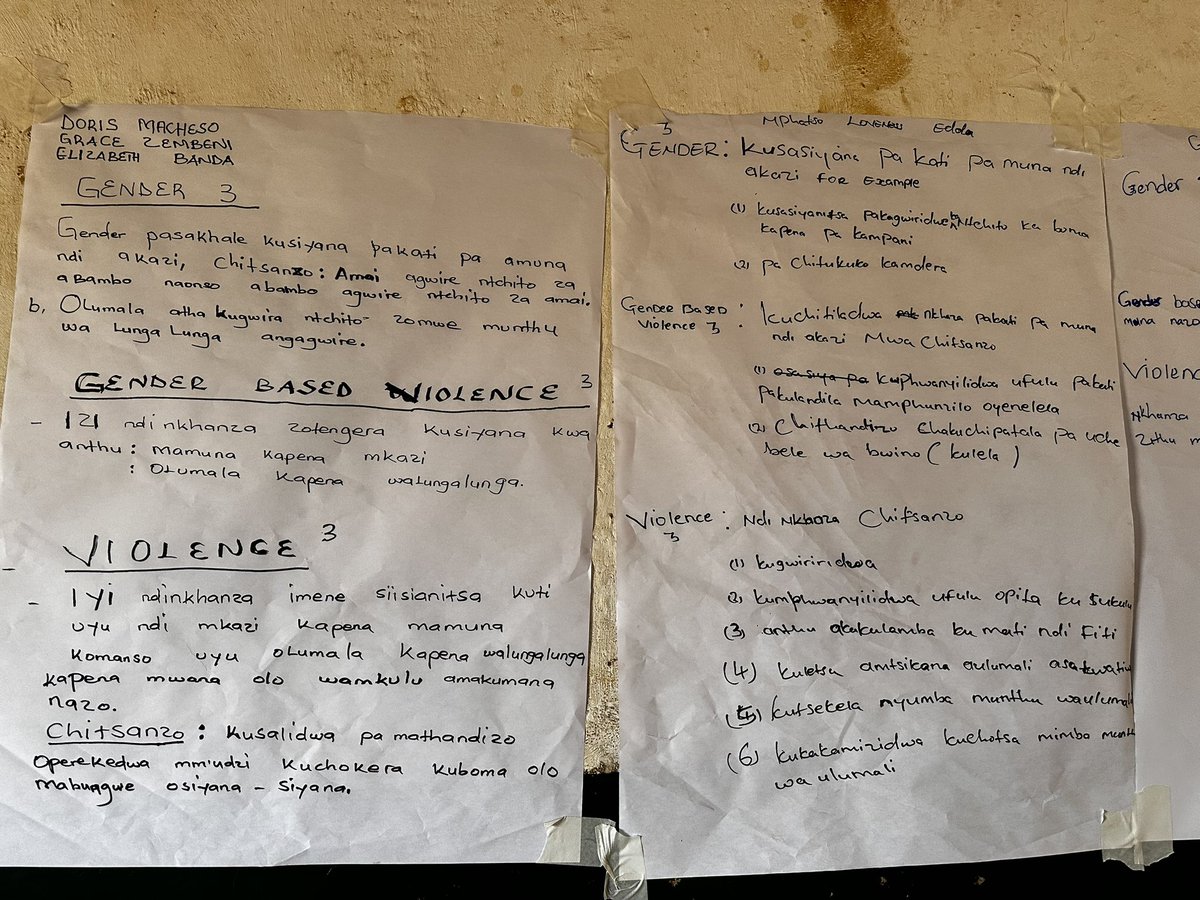 DORIS MACHESO
GRACE ZEMBENI
ELIZABETH BANDA
GENDER 3
Gender pasakhale kusiyana pakati pa amuna
ndi akazi, Chitsanzo: Amai agwire ntchito za
abambo naonso abambo agwire ntchito za amai.
b, Olumala atha kugwira ntchito zomwe munthu
wa Lunga Lunga angagwire.
GENDER BASED VIOLENCE 3
- IZI ndi nkhanza zotengera kusiyana kwa
anthu : mamuna kapena mkazi
: Olumala kapena walungalunga.
VIOLENCE 3
- IYI ndinkhanza imene siisianitsa kuti
uyu ndi mkazi kapena mamuna
komanso uyu olumala kapena walungalunga
kapena mwana olo wamkulu amakumana
nazo.
Chitsanzo : Kusalidwa pa mathandizo
operekedwa mmiudzi kuchokera kuboma olo
mabungwe osiyana - siyana.
3 Mphatso Loveness Edda
GENDER : Kusasiyana pa kati pa muna ndi
akazi for Example
(1) kusasiyanitsa pakagwiridwe ka Ntchito ka boma
kapena pa kampani
(2) pa Chitukuko kamdera
GENDER BASED
Violence 3 : Kuchitikidwa nkhaza pakati pa muna
ndi akazi Mwa Chitsanzo
(1) kuphwanyilidwa ufulu pakati
pakulandila mamphunzilo oyenelela
(2) Chithandizo Chakuchipatala pa uche
bele wa bwino (kulela)
Violence 3 : Ndi Nkhaza Chitsanzo
(1) kugwiriridwa
(2) kumphwanyilidwa ufulu opita ku sukulu
(3) anthu akakulamba ku mati ndi Fiti
(4) kuletsa amtsikana aulumali
(5) kutsekela nyumba munthu
(6) kukakamizidwa kuchotsa mimba
wa ulumali
Gender
Gender base
muna nazo
Violence
Nkhanza